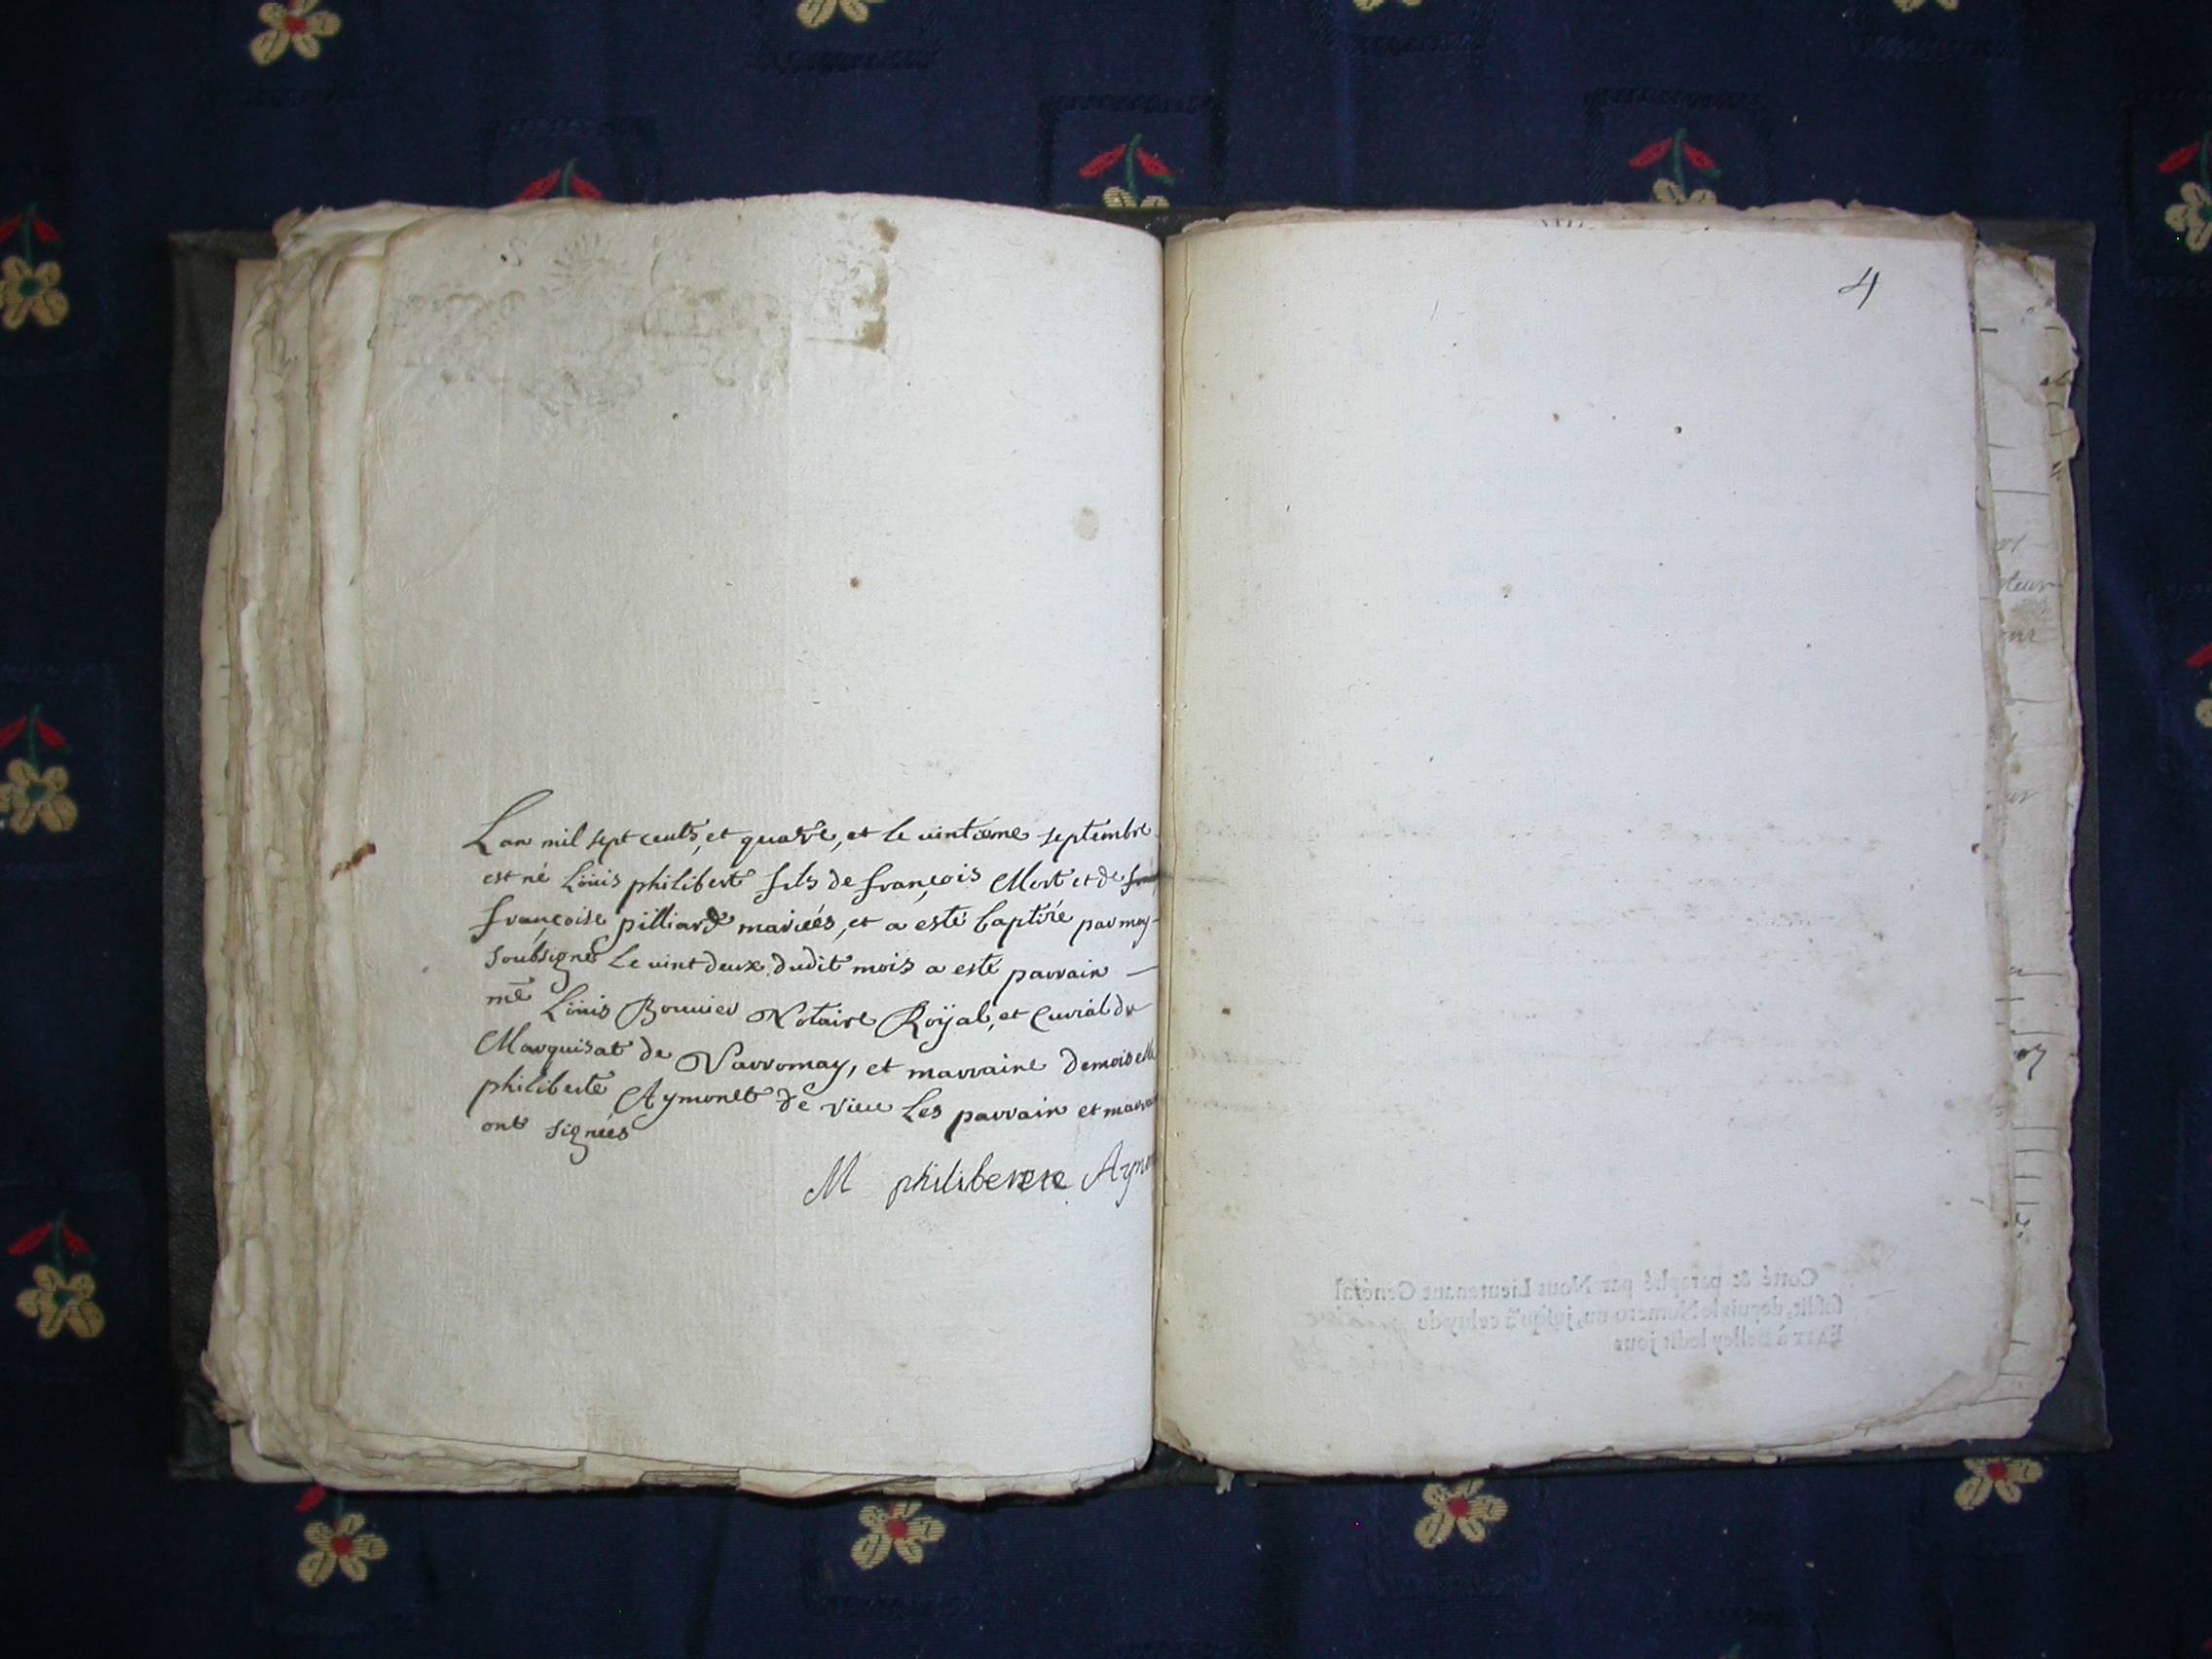 Lan mil sept cents, et quatre, et le vintieme septembre
est né Loüis philibert fils de françois Mort et de
françoise pilliard mariéés, et a esté baptisé par moy
soubsigné Le vint deux dudit mois a esté parrain
me Loüis Bouvier Notaire Roÿal, et Curial du
Marquisat de Varromay, et marraine Demoiselle
philiberte Aymonet de vieu Les parrain et
ont signéés
M philiberte
4
Cotté & paraphé par Nous Lieutenant General
susdit, depuis le Numero un, jusqu'à celuy de
FAIT à Belley ledit jour